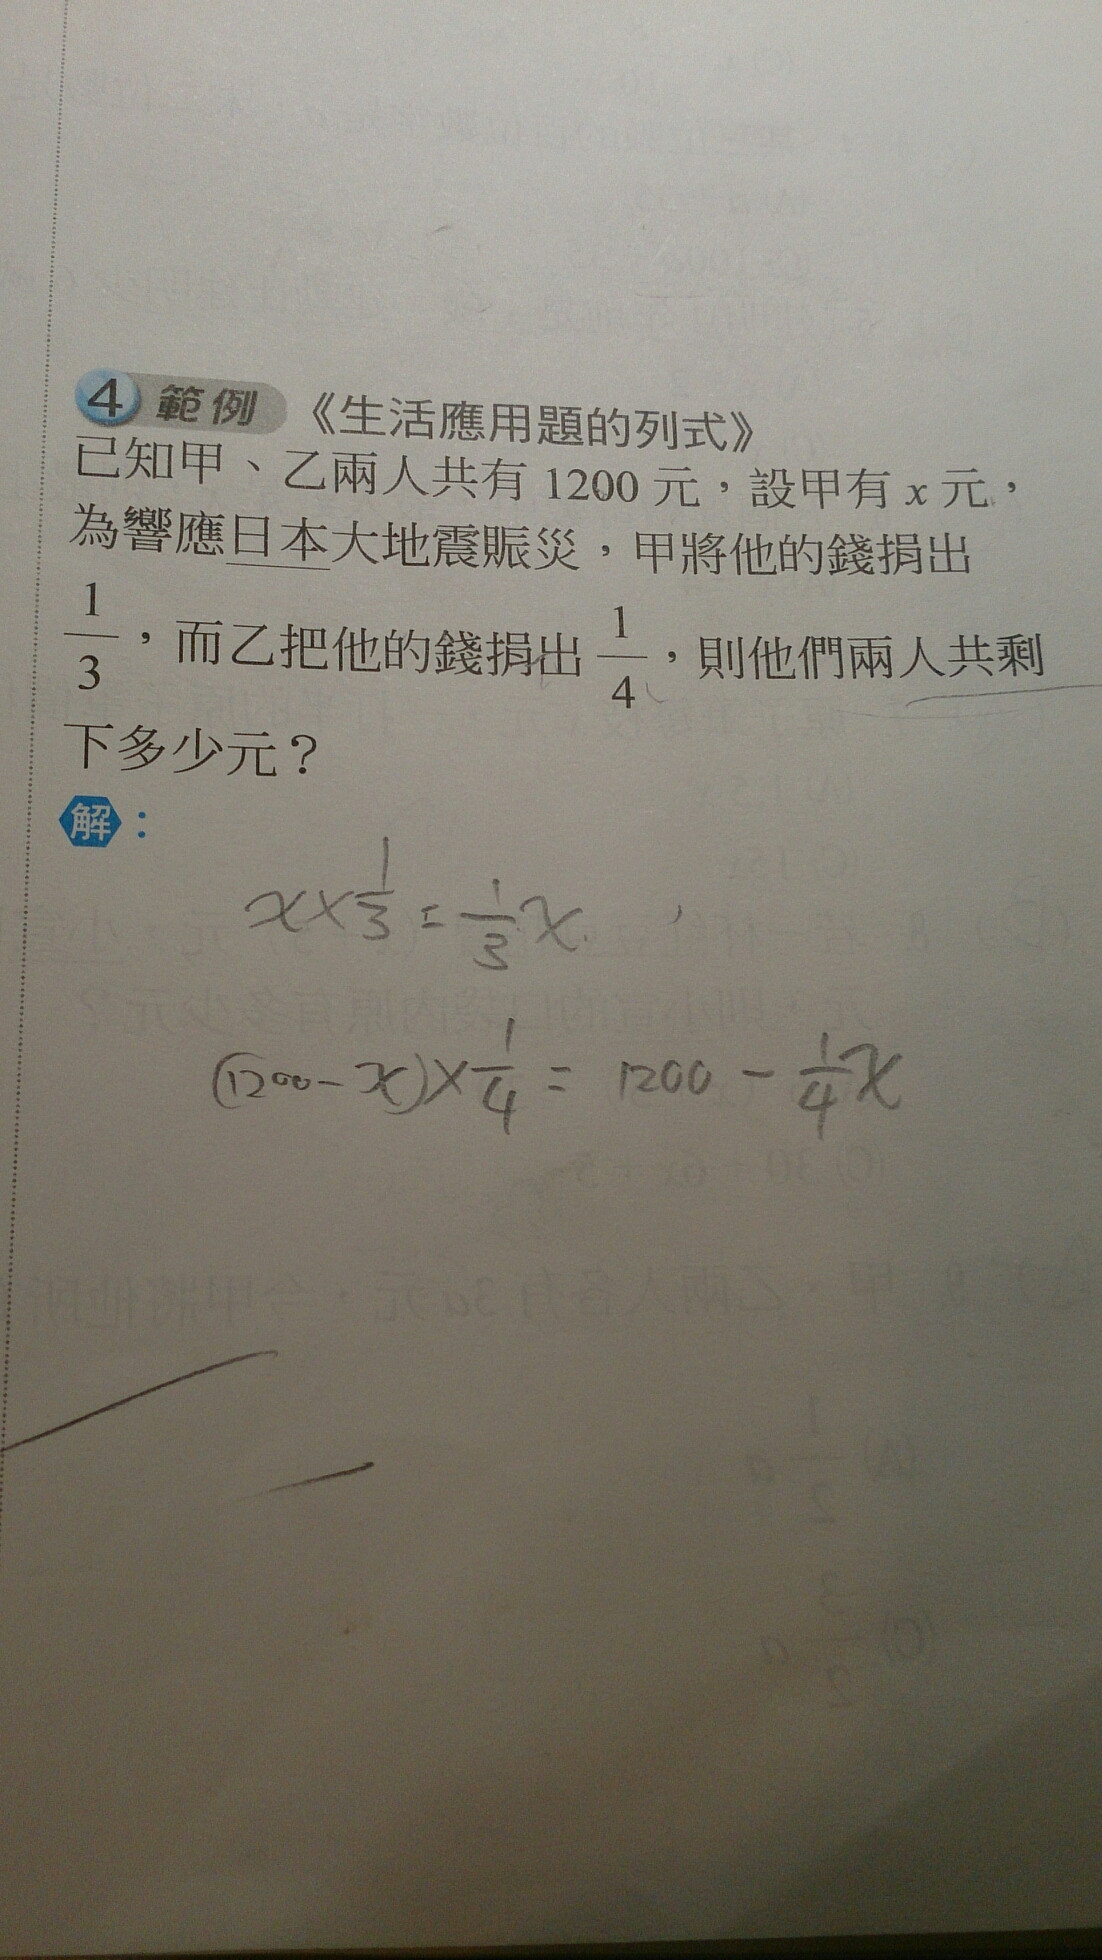 4 範例 《生活應用題的列式》
已知甲、乙兩人共有 1200 元，設甲有 x 元，
為響應日本大地震賑災，甲將他的錢捐出
1/3，而乙把他的錢捐出 1/4，則他們兩人共剩
下多少元？
解：
x×1/3 = 1/3 x ,
(1200-x)×1/4 = 1200 - 1/4 x